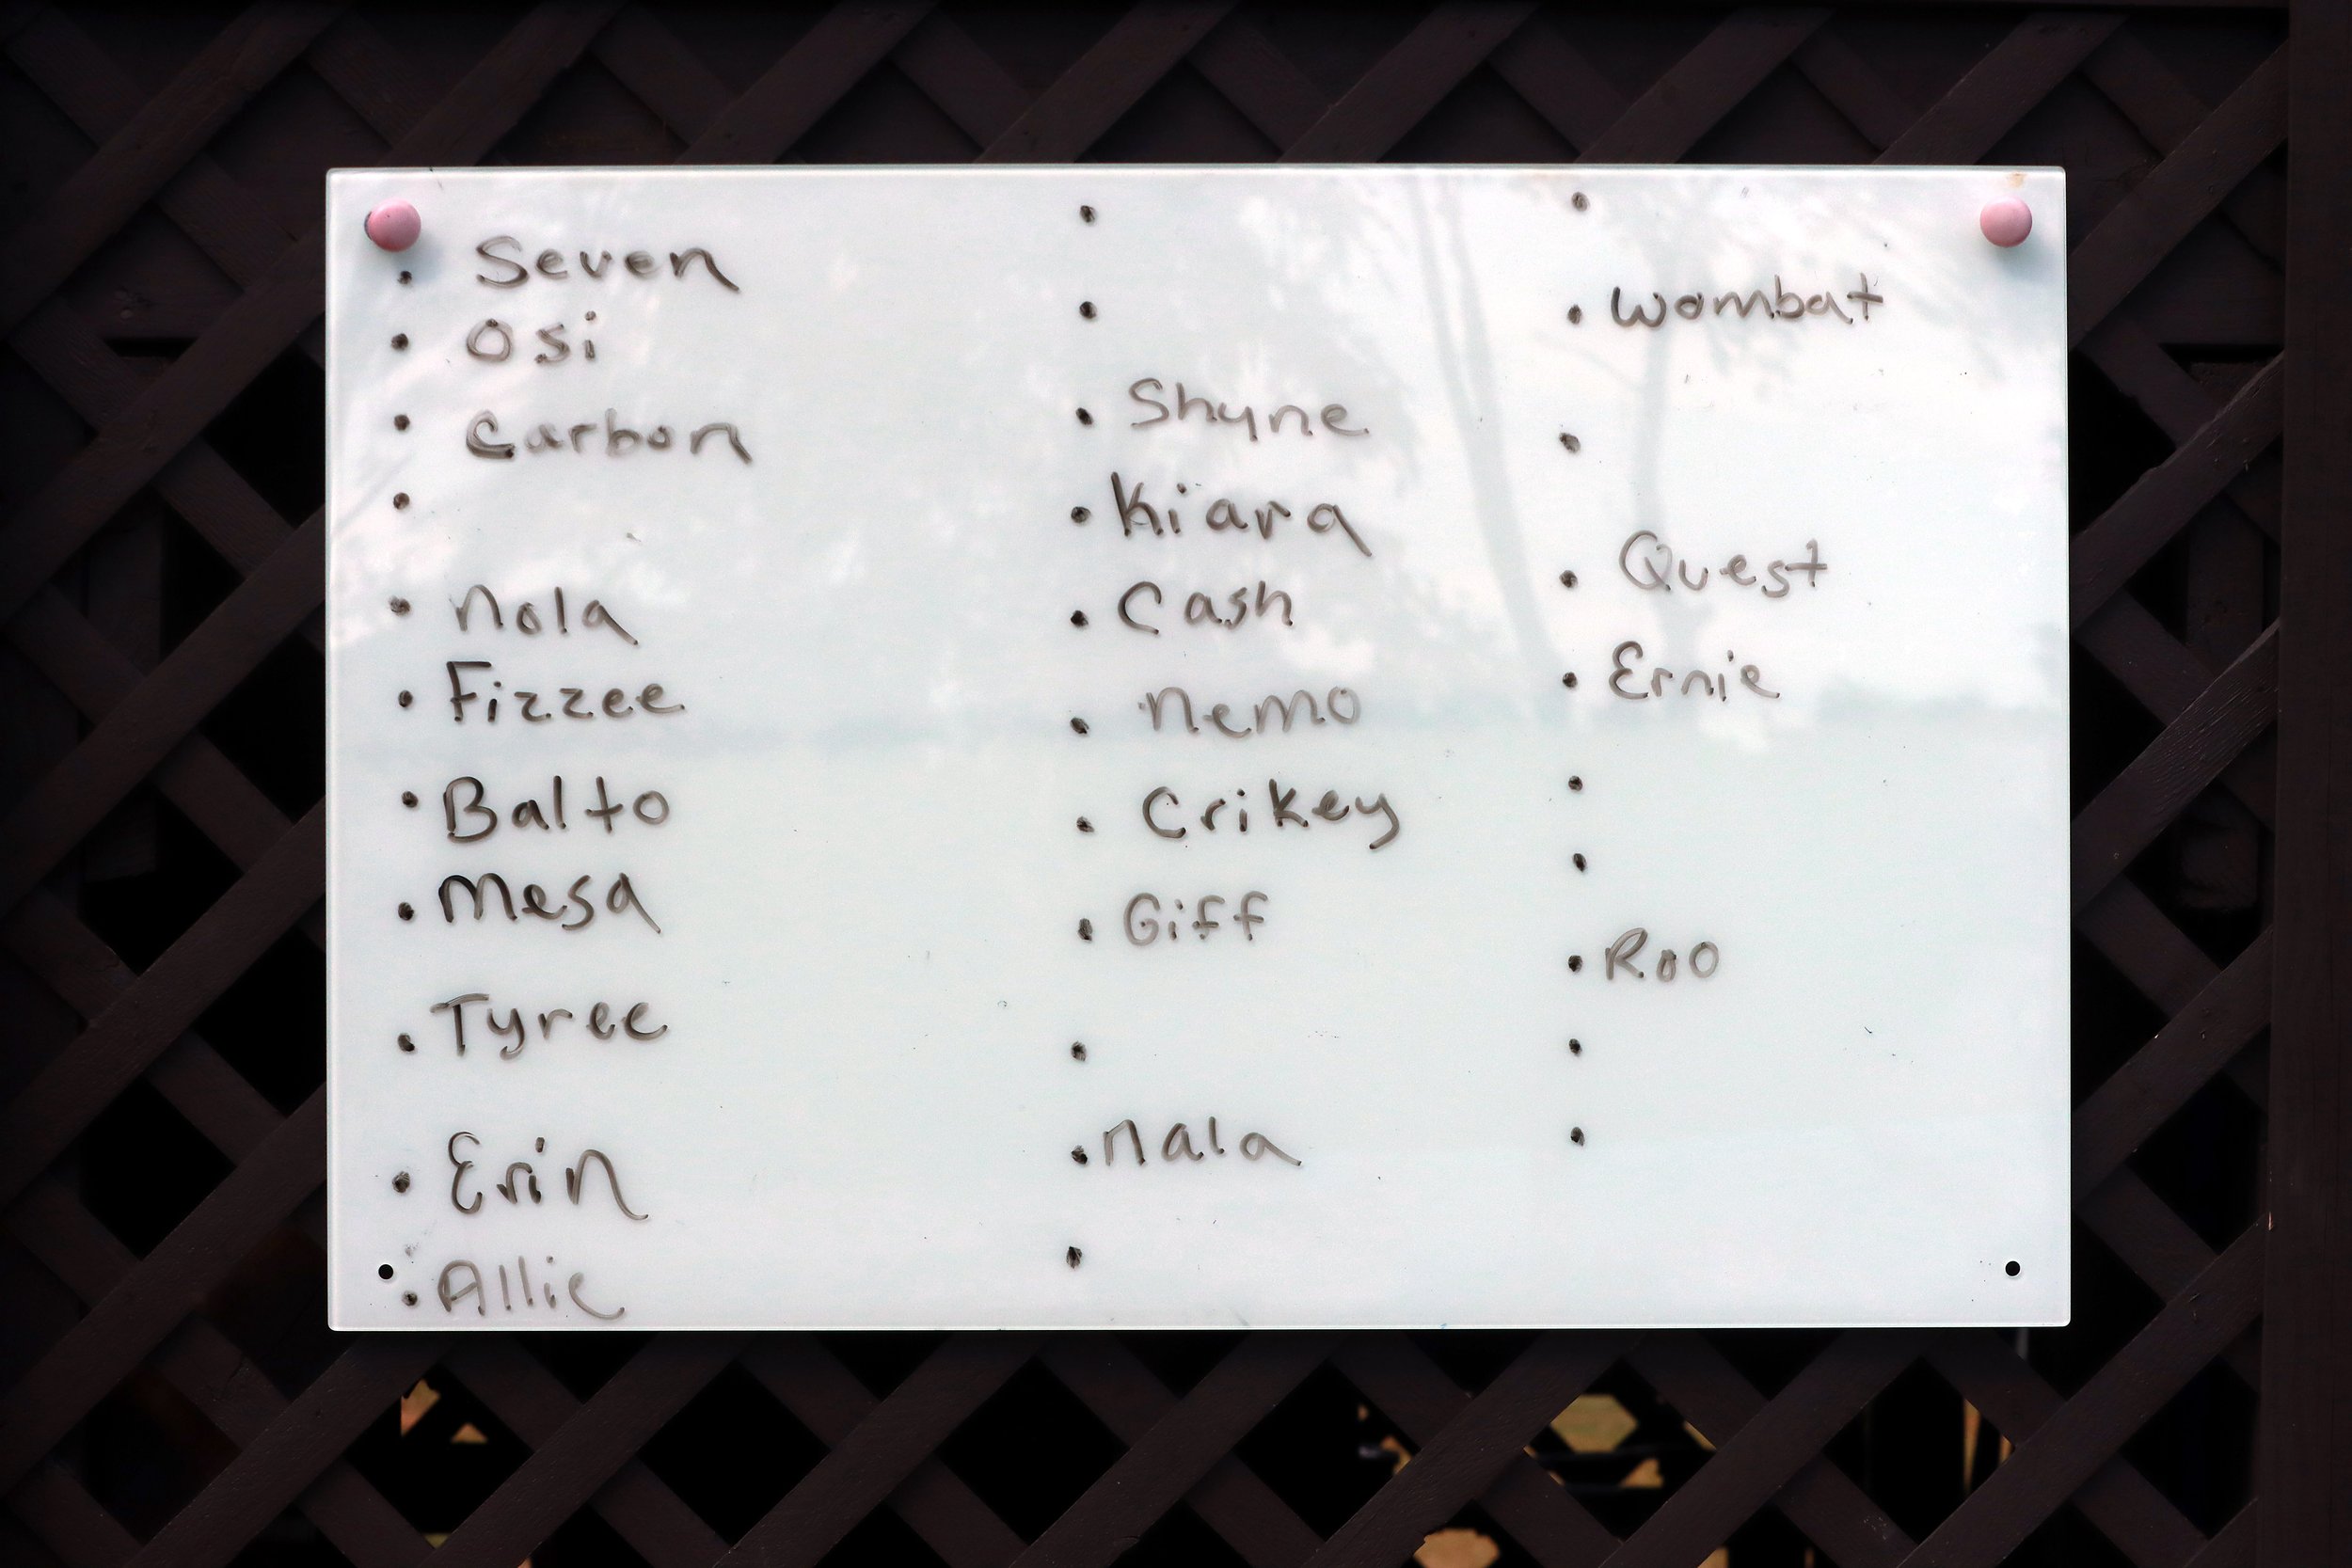 • Seven
• Osi
• Carbon
•
• Nola
• Fizzee
• Balto
• Mesa
• Tyree
• Erin
• Allie
•
•
• Shyne
• Kiara
• Cash
• Nemo
• Crikey
• Giff
•
• Nala
•
•
• Wombat
•
• Quest
• Ernie
•
•
• Roo
•
•